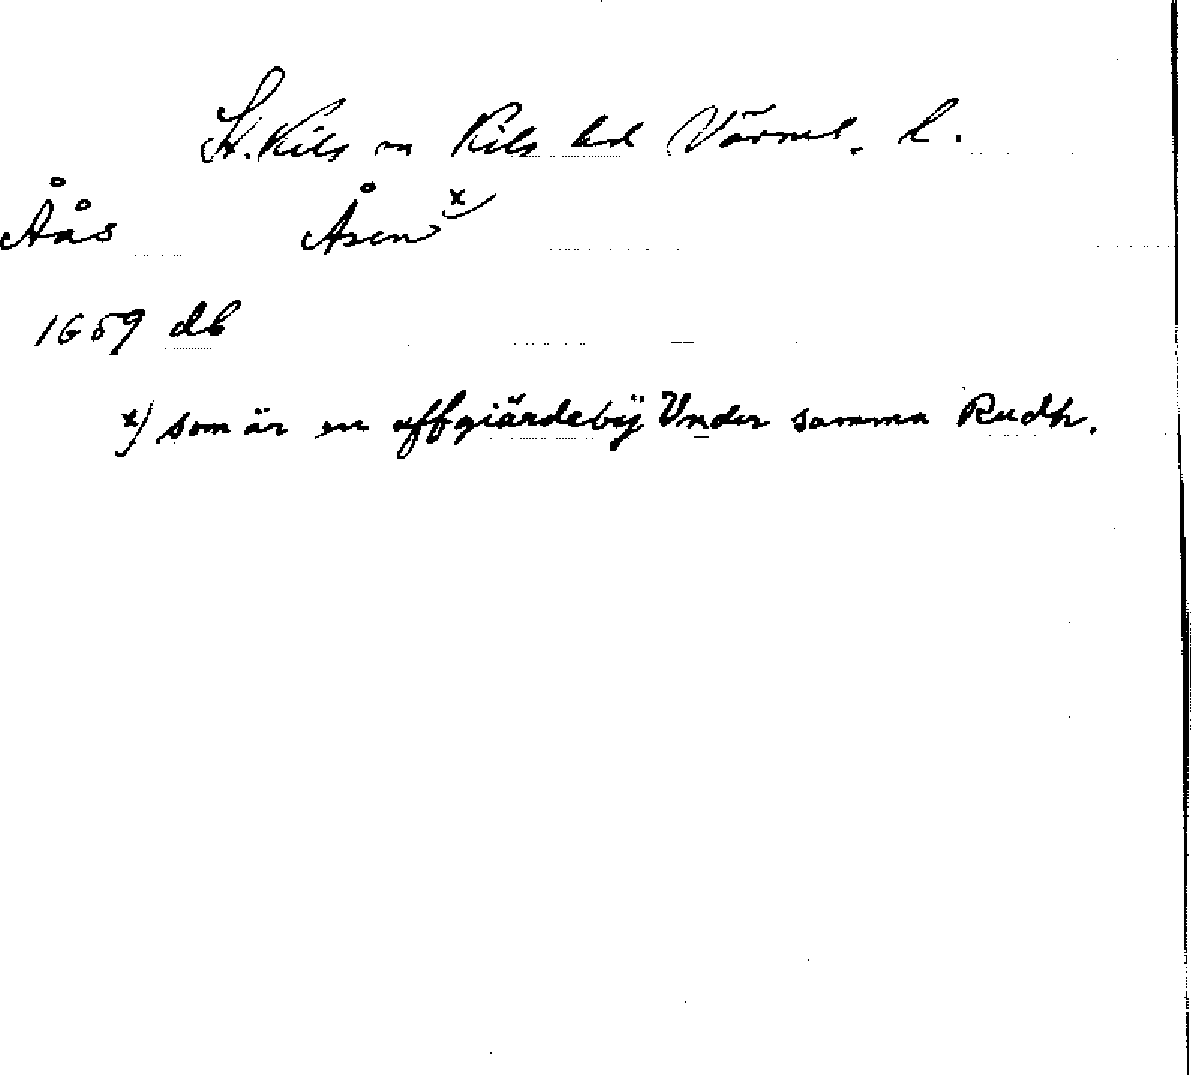 St. Kils sn Kils hd Värml. l.
Åås Åsen x)
1659 db
x) som är en affgiärdebÿ Under samma Rudh.